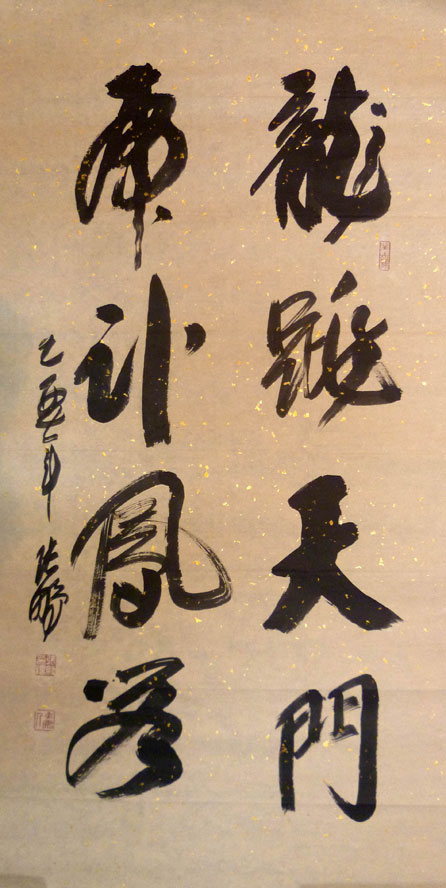 龍跳天門
虎卧鳳閣
乙酉年